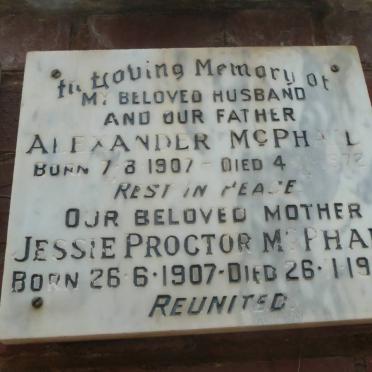 In Loving Memory of
MY BELOVED HUSBAND
AND OUR FATHER
ALEXANDER McPHAIL
BORN 7·8·1907 - DIED 4
REST IN PEACE
OUR BELOVED MOTHER
JESSIE PROCTOR McPHAI
BORN 26·6·1907·DIED 26·1·19
REUNITED